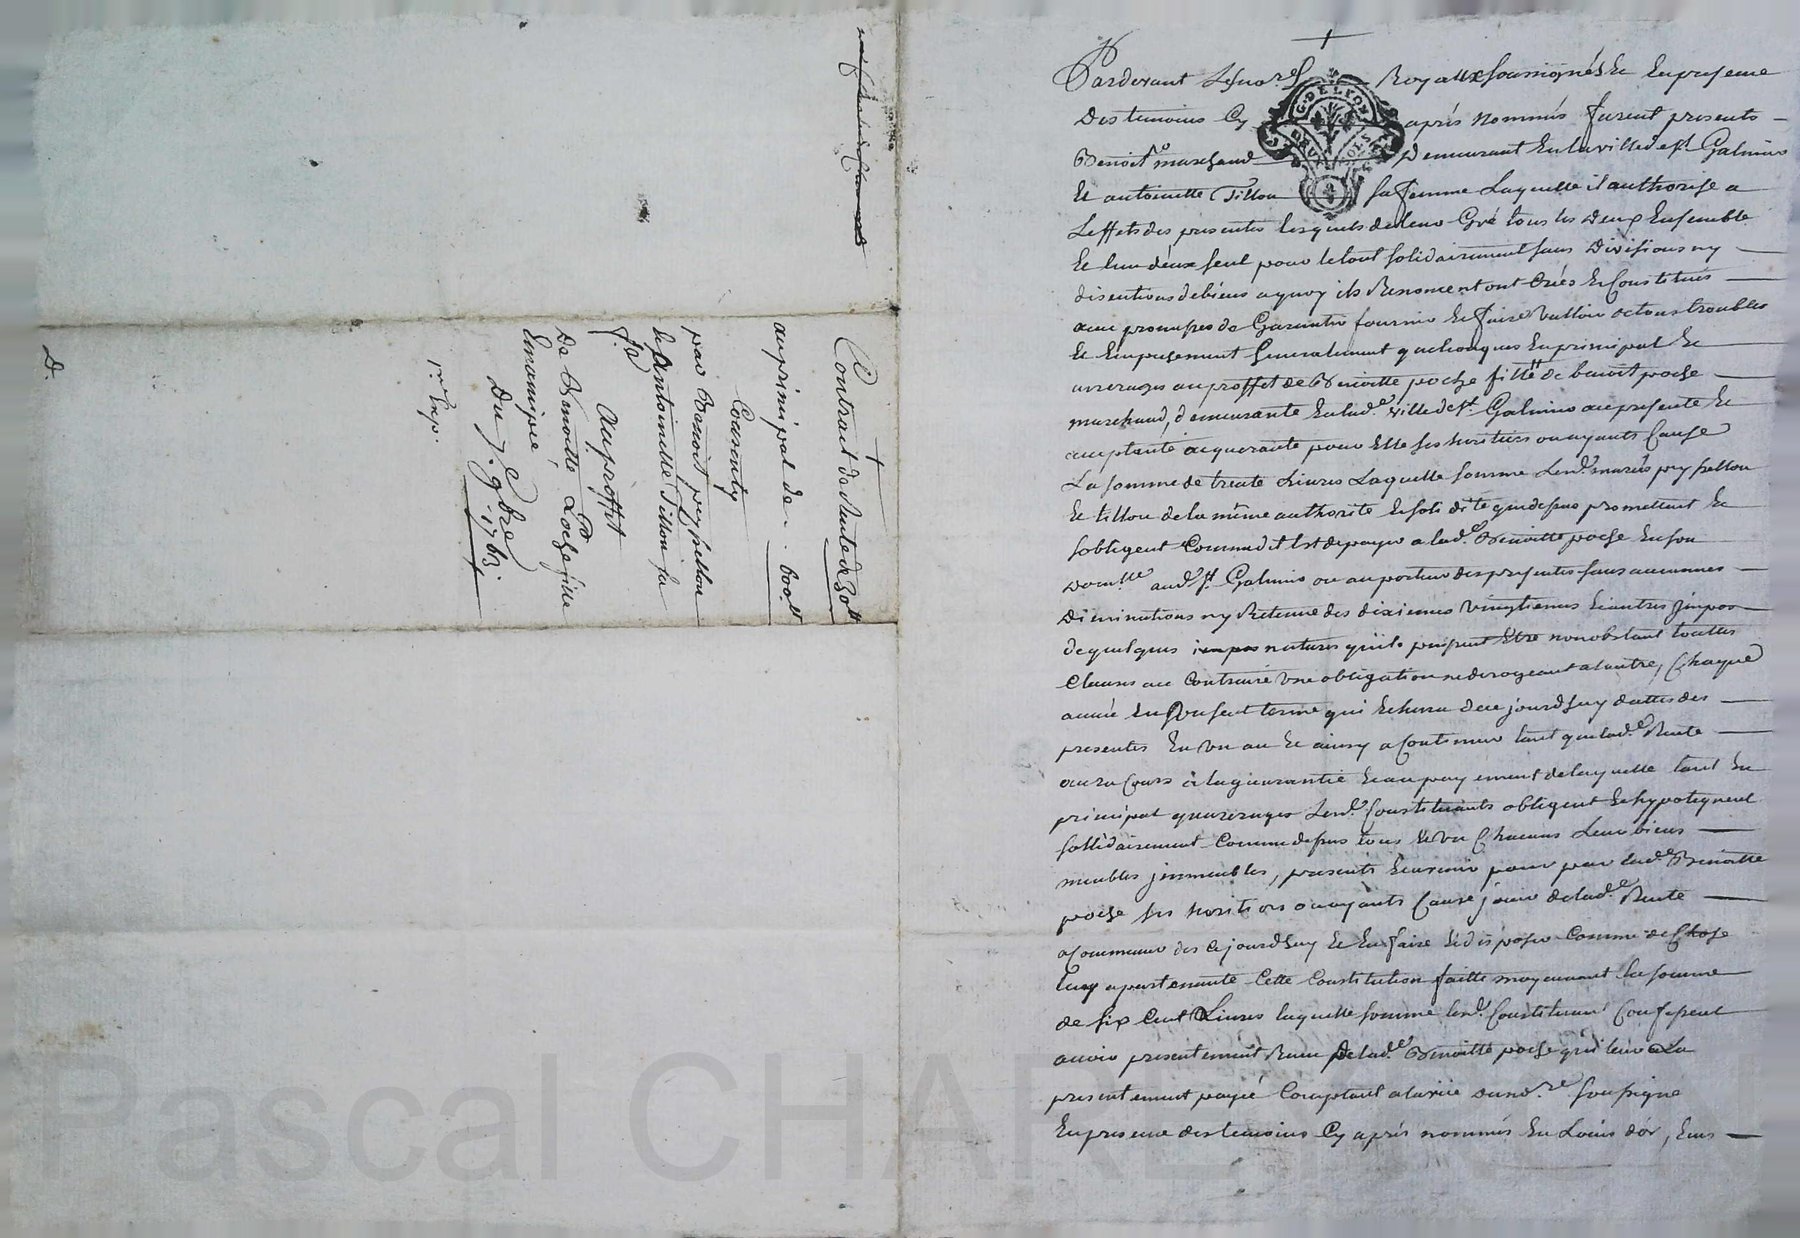 Contrait de Rente de 30ᵗᵗ
au principal de . 600ᵗᵗ
Consenty
par Benoit peyssellon
et Antoinette Tillon sa
fᵉ
Au proffit
De Benoitte Poche fille
Emancipée
Du 7.ᵉ 9bre
176
D.
Pardevant Les no.res Royaux soussignés Et En presence
Des temoins Cy après nommés furent presents
Benoit marchand Demeurant En la ville de st Galmier
Et antoinette Tillon sa femme Laquelle il authorise a
L'effet des presentes lesquels de leur Gré tous les Deux Ensemble
Et l'un d'eux seul pour le tout solidairement sans Divisions ny
discutions de biens a quoy ils Renoncent ont Créés Et Constitués
avec promesses de Garantir fournir Et faire Valloir de tous troubles
Et Empechement Generalement quelconques En principal Et
arrerages au proffit de Benoitte poche fille de benoit poche
marchand, demeurante En lad.e Ville de st. Galmier au presente Et
acceptante acquerante pour Elle ses heritiers ou ayants Cause
La somme de trente Livres Laquelle somme Lesd. mariés peyssellon
Et tillon de la même authorité Et solidité que dessus promettent Et
s'obligent Comme dit Est de payer a lad.e Benoitte poche En son
Domlle aud. st. Galmier ou au porteur des presentes sans aucunnes
Diminutions ny Retenue des dixiemes Vingtiemes Et autres jmpos
de quelques natures qu'ils puissent Etre nonobstant touttes
Clauses au Contraire Une obligation ne derogeant a l'autre, Chaque
année En Un seul terme qui Echerra de ce jourd'huy dattes des
presentes En Un an Et ainsy a Continuer tant que lad.e Rente
aura Cours à la guarantie Et au payement de laquelle tant En
principal qu'arrerages Lesd. Constituants obligent Et hypotequent
sollidairement Comme dessus tous Et Un Chacuns Leurs biens
meubles jmmeubles, presents Et avenir pour par lad.e Benoitte
poche ses heritiers ou ayants Cause jouir de lad.e Rente
a Commencer des ce jourd'huy Et En faire Et disposer Comme de Chose
Luy apartenante Cette Constitution faitte moyennant la somme
de six Cent Livres laquelle somme lesd. Constituant Confessent
avoir presentement Reçu De lad.e Benoitte poche qui leur a La
presentement payé Comptant a la vüe dud. no.re soussigné
En presence des temoins Cy après nommés En Louis d'or, Ecus
Pascal CHARETRON